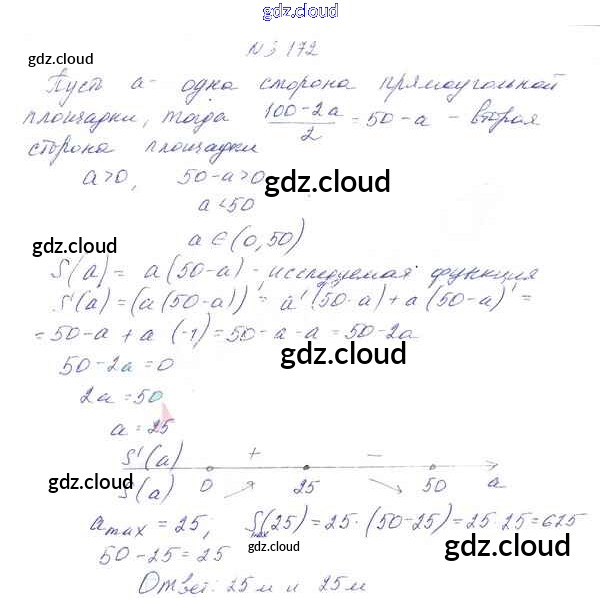 gdz.cloud
gdz.cloud
gdz.cloud
№ 172
Пусть a - одна сторона прямоугольной
площадки, тогда (100-2a)/2 = 50-a - вторая
сторона площадки
a>0, 50-a>0
gdz.cloud
a<50
a∈(0,50)
gdz.cloud
S(a) = a(50-a) - исследуемая функция
S'(a) = (a(50-a))' = a'(50-a)+a(50-a)' =
= 50-a + a (-1) = 50-a-a = 50-2a
50-2a=0
gdz.cloud
2a=50
a=25
S'(a) + −
S(a) 0 25 50 a
gdz.cloud
a max = 25; S(25) = 25·(50-25) = 25·25=625
max
50-25=25
gdz.cloud
gdz.cloud
Ответ: 25м и 25м